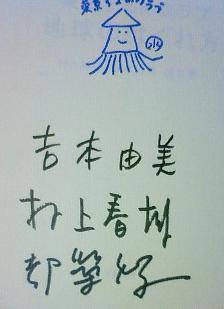 東京するめクラブ
吉本由美
村上春樹
都築響一